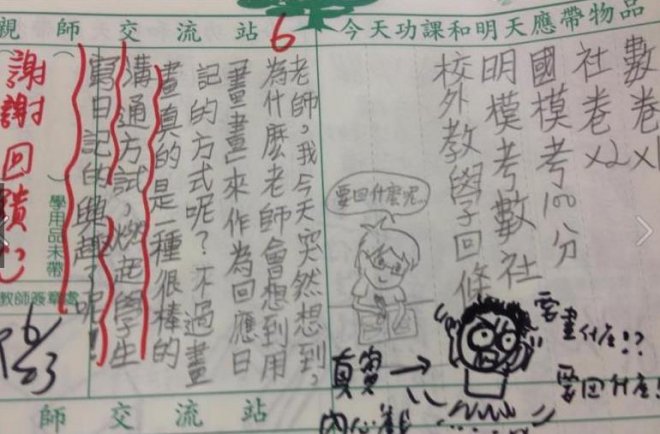 今天功課和明天應帶物品
親師交流站
數卷x1
社卷x2
國模考100分
明模考數社
校外教學回條
要回什麼呢..
要畫什麼!?
要回什麼!
真實
內心戲
6
老師,我今天突然想到,
為什麼老師會想到用
「畫畫」來作為回應日
記的方式呢?不過畫
畫真的是一種很棒的
溝通方試,燃起學生
寫日記的興趣了呢!
謝謝回饋
學用品未帶
教師簽章處
6/23
師交流站